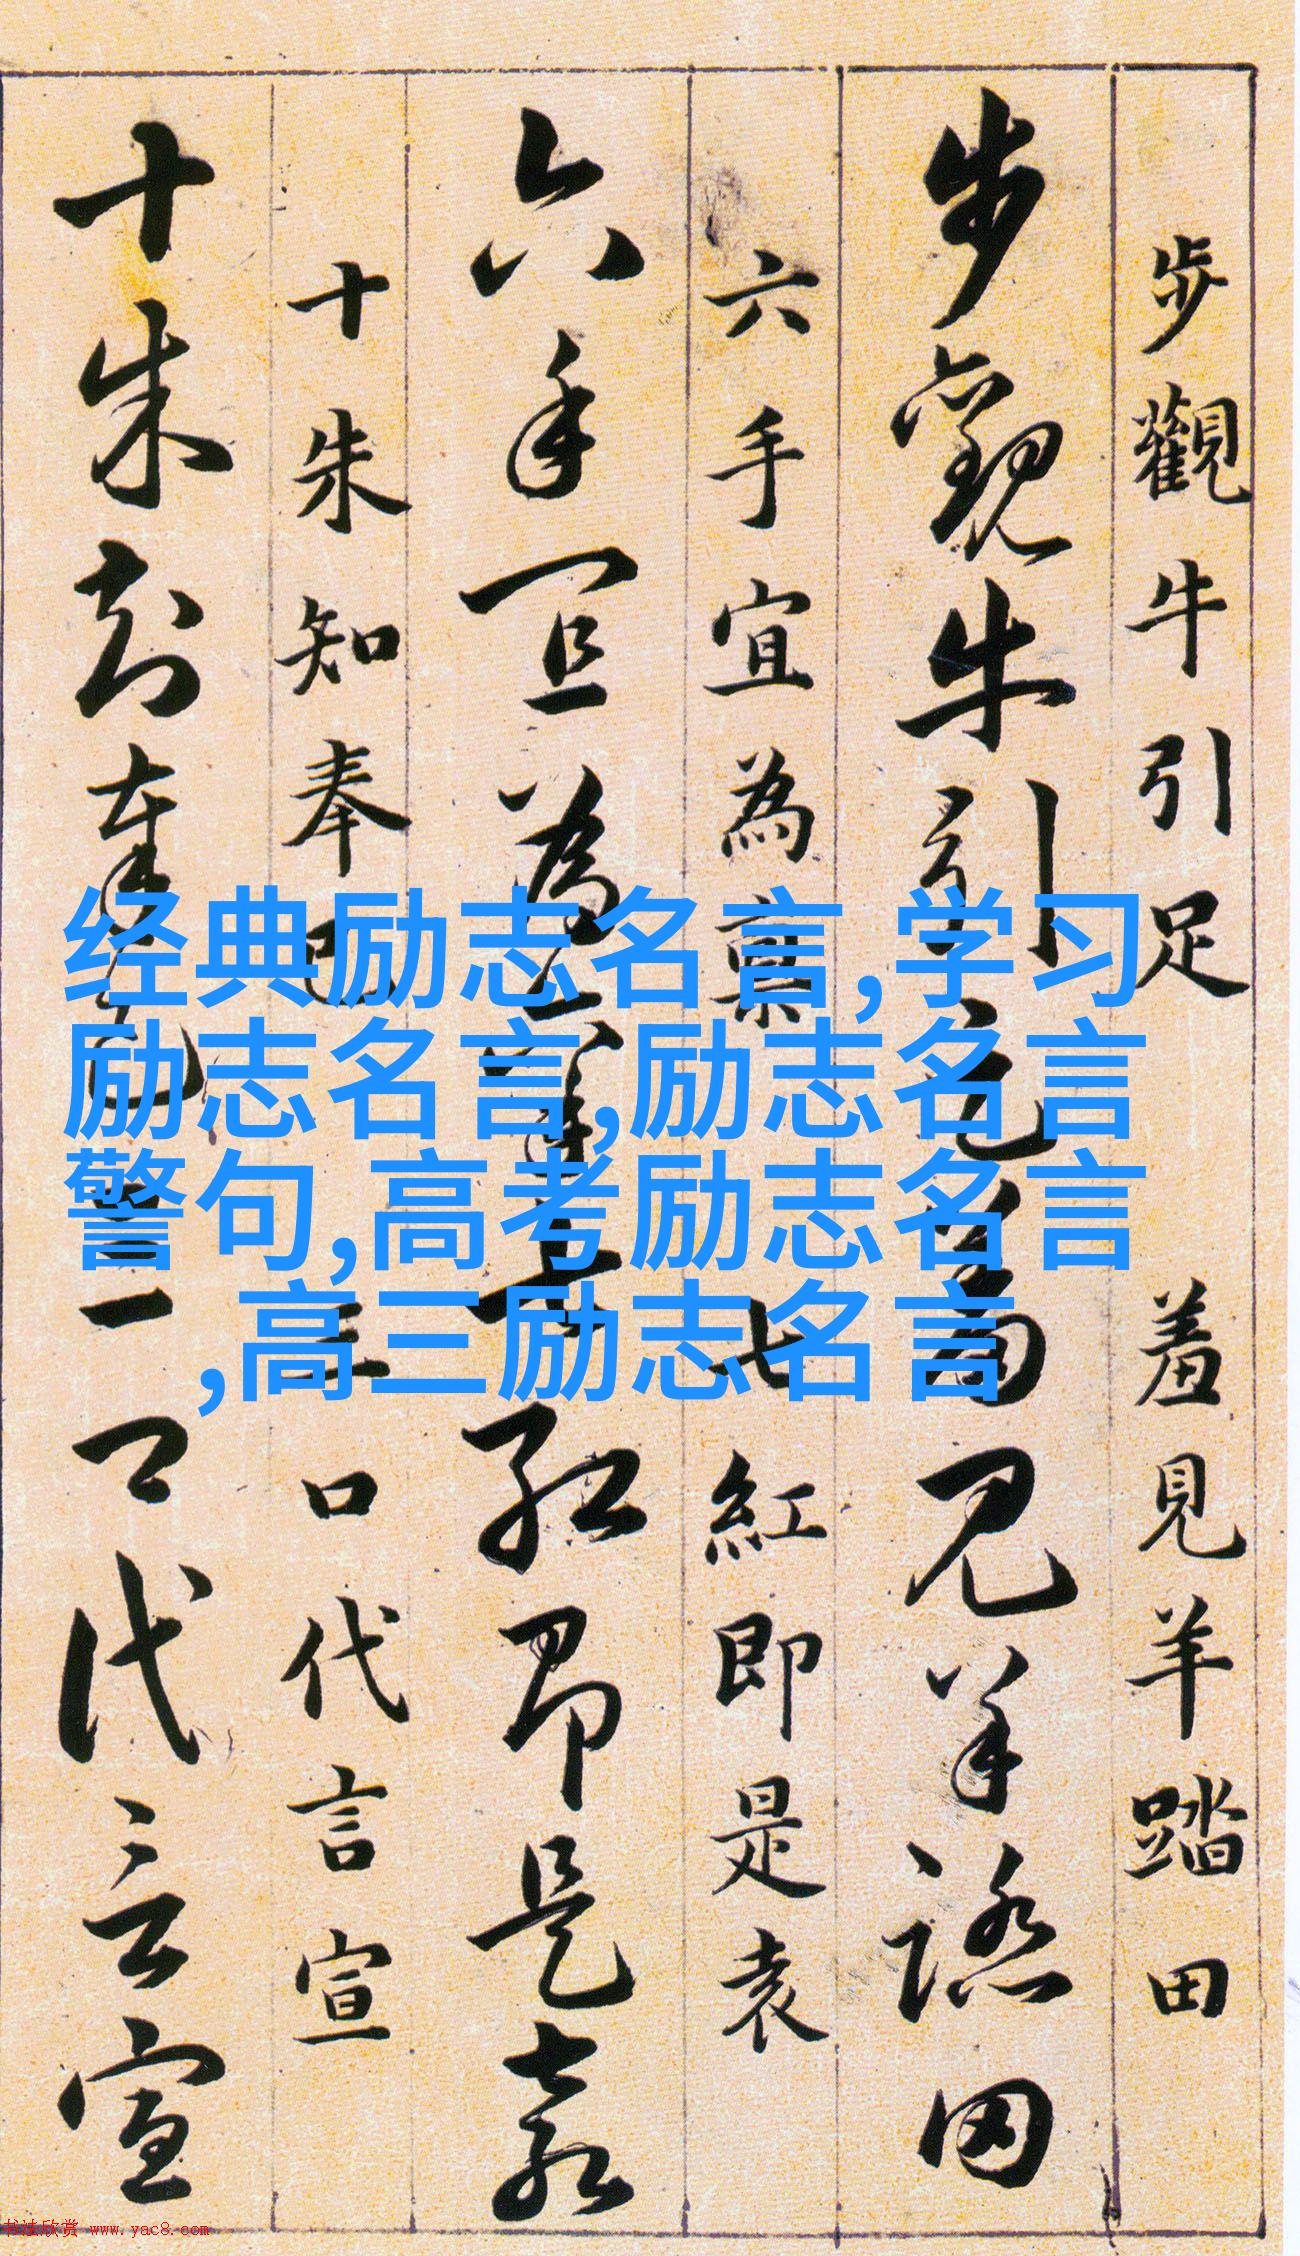 步觀牛引足 羞見羊踏田
步觀牛引足羞見羊踏田
六手宜為稟 七紅即是袁
六手宜為稟七紅即是袁
十朱知奉 三口代言宣
十朱知奉 三口代言宣
经典励志名言,学习
励志名言,励志名言
警句,高考励志名言
,高三励志名言
书法欣赏 www.yac8.com